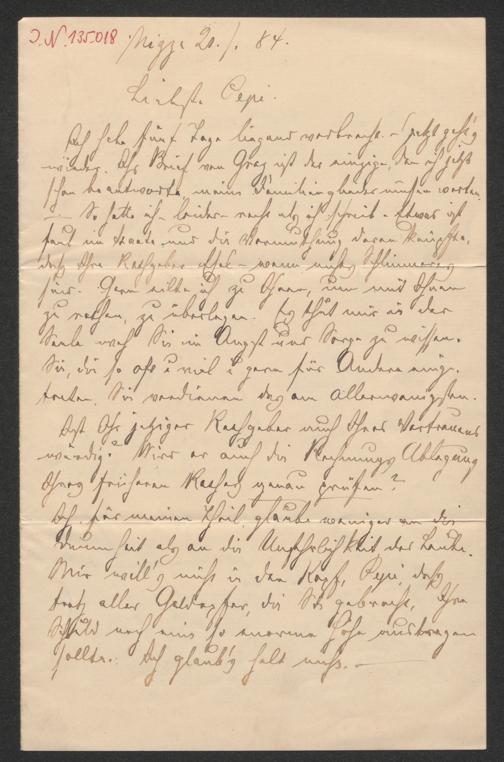 J.N. 135.018
Nizza 20./. 84.
Liebste Pepi.
Ich habe fünf Tage liegend verbracht. – Jetzt geht's
wieder. Ihr Brief von Graz ist der einzige, den ich jetzt
schon beantworte, meine Familienglieder müssen warten.
– So hatte ich – leider – recht als ich schrieb – Etwas ist
faul im Staate und die Vermuthung daran knüpfte,
daß Ihre Rathgeber – wenn nicht Schlimmeres
sind. Gern eilte ich zu Ihnen, um mit Ihnen
zu rathen, zu überlegen. Es thut mir in der
Seele weh Sie in Angst und Sorge zu wissen.
Sie, die so oft u viel u gern für Andere einge-
treten. Sie verdienen das am allerwenigsten.
Ist Ihr jetziger Rathgeber auch Ihres Vertrauens
würdig? Wird er auch die Rechnungs Ablegung
Ihres früheren genau prüfen?
Ich, für meinen Theil, glaube weniger an die
Dummheit als an die Unehrlichkeit der Leute.
Mir will's nicht in den Kopf, Pepi, daß
trotz aller Geldopfer, die Sie gebracht, Ihre
Schuld noch eine so enorme Höhe betragen
sollte. Ich glaub's halt nicht. –